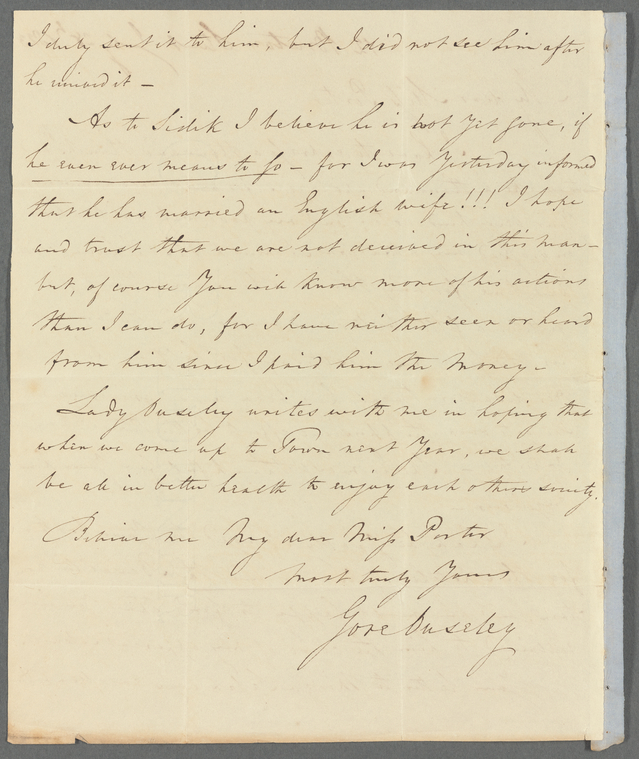 I duly sent it to him, but I did not see him after
he received it –
As to Sidik I believe he is not yet gone, if
he even ever means to go – for I was Yesterday informed
that he has married an English wife!!! I hope
and trust that we are not deceived in this man –
but, of course You will Know more of his actions
than I can do, for I have neither seen or heard
from him since I paid him the Money –
Lady Ouseley unites with me in hoping that
when we come up to Town next Year, we shall
be all in better health to enjoy each others society.
Believe me My dear Miss Porter
Most truly Yours
Gore Ouseley